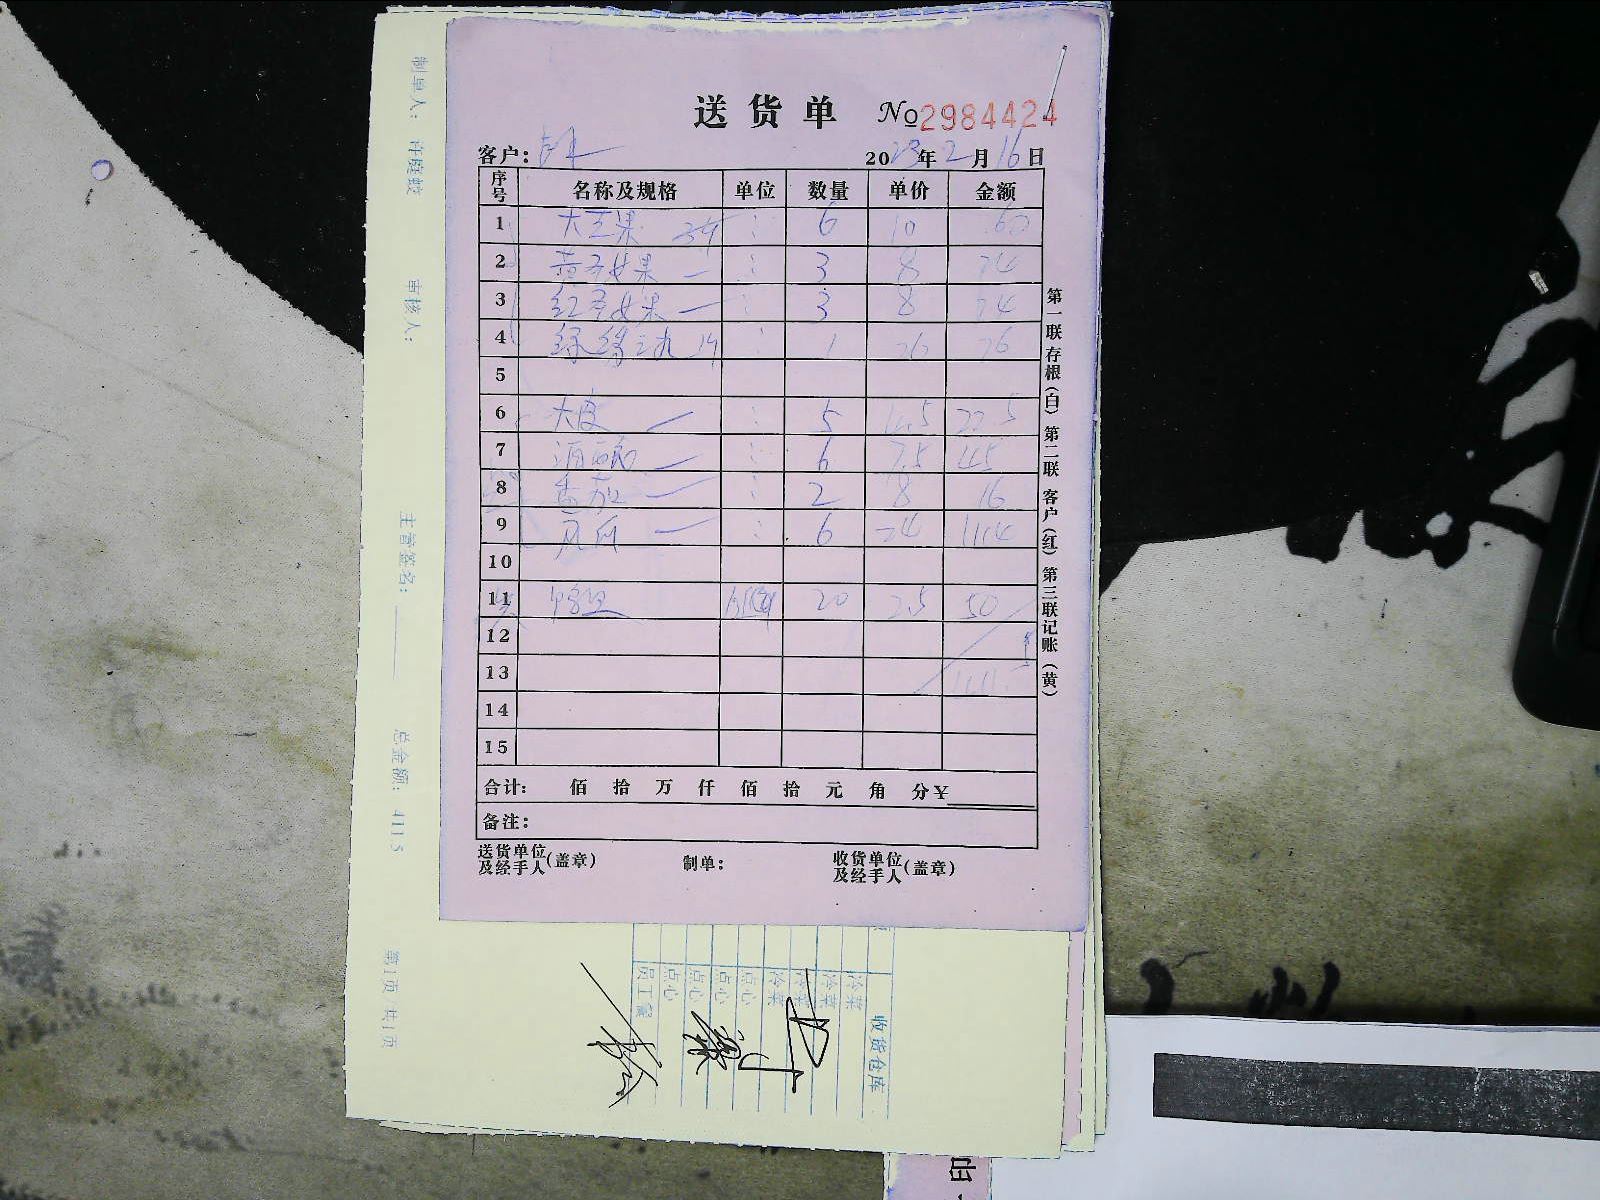 送货单 №2984424
客户: 2023年2月16日
序号 名称及规格 单位 数量 单价 金额
1 大芒果 6 10 60
2 黄圣女果 3 8 24
3 红圣女果 3 8 24
4 1 26 26
5
6 大皮 5 4.5 22.5
7 油面筋 6 7.5 45
8 番茄 2 8 16
9 6 24 144
10
11 20 2.5 50
12
13
14
15
合计: 佰 拾 万 仟 佰 拾 元 角 分 ¥
备注:
送货单位及经手人(盖章) 制单: 收货单位及经手人(盖章)
第一联 存根(白) 第二联 客户(红) 第三联 记账(黄)
制单人: 许庭蛟 审核人: 主管签名: 总金额: 4115 第1页/共1页
收货仓库
冷菜
冷菜
冷菜
冷菜
点心
点心
点心
点心
员工餐
印